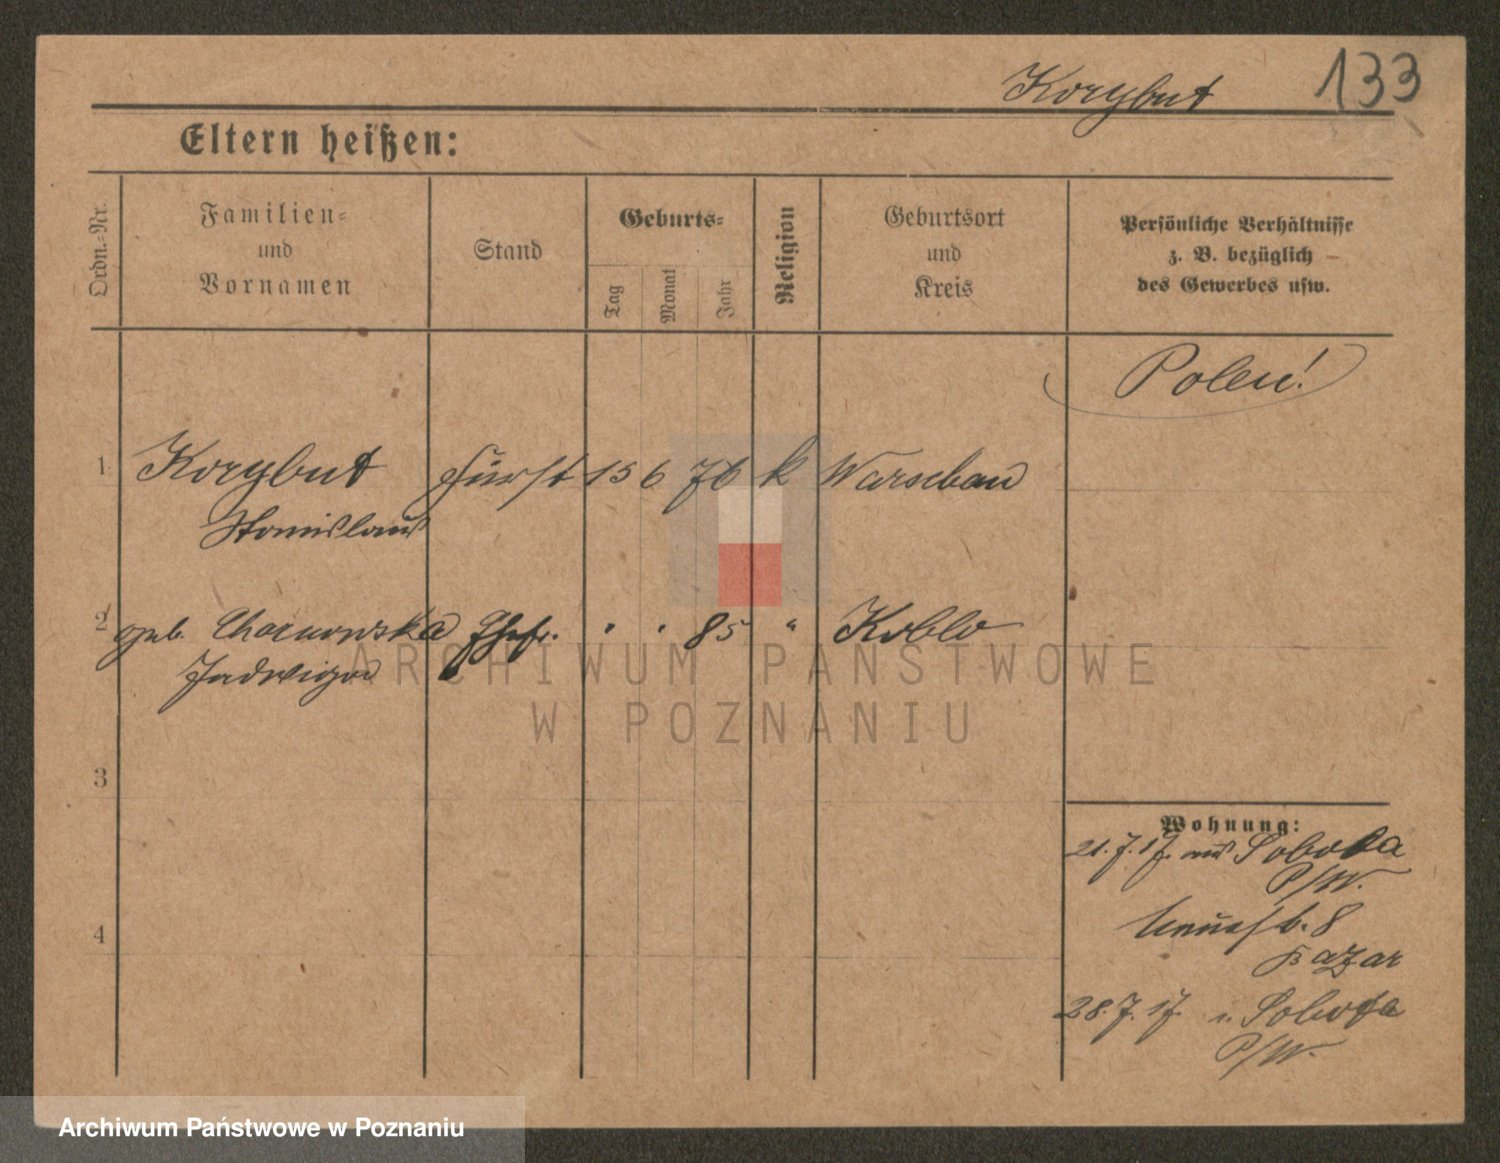 Korybut 133
Eltern heißen:
Ordn.-Nr.
Familien-
und
Vornamen
Stand
Geburts-
Tag
Monat
Jahr
Religion
Geburtsort
und
Kreis
Persönliche Verhältnisse
z. B. bezüglich
des Gewerbes usw.
Polen!
1 Korybut Fürst 15 6 76 k Warschau
Stanislaus
2 geb. Charnowska Ehefr. " " 85 " Koblo
Jadwiga
3
4
Wohnung:
21.7.17. aus Sobota
P/W.
Neuestr. 8
Bazar
28.7.17. n. Sobota
P/W.
ARCHIWUM PAŃSTWOWE
W POZNANIU
Archiwum Państwowe w Poznaniu